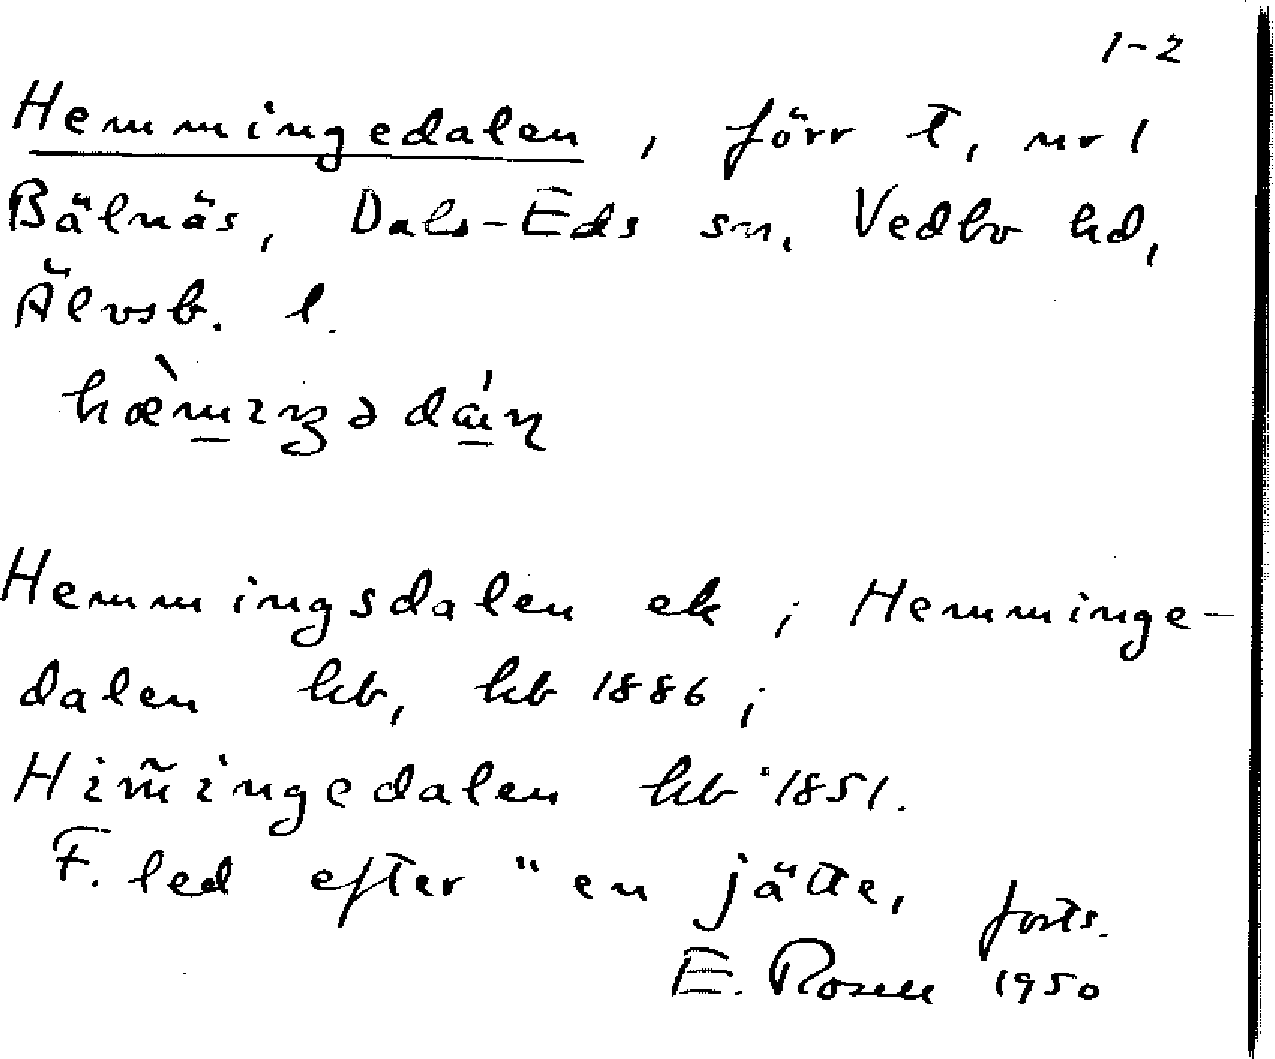 1-2
Hemmingedalen, förr t, nr 1
Bälnäs, Dals-Eds sn, Vedbo hd,
Älvsb. l.
Hemmingsdalen ek; Hemminge-
dalen kb, kb 1886;
Him̃ingedalen kb 1851.
F. led efter "en jätte, forts.
E. Rosell 1950